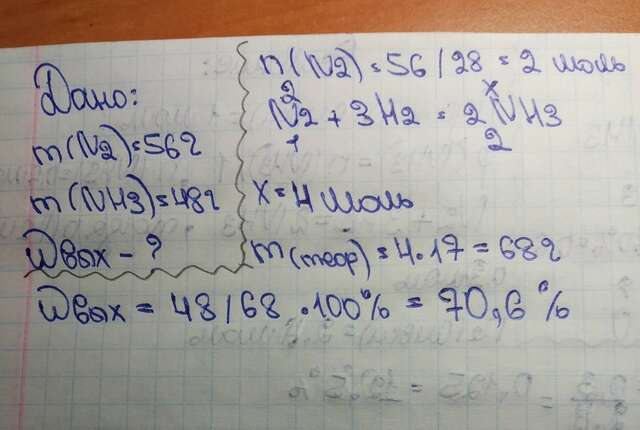 Дано:
m(N2)=56г
m(NH3)=48г
Wвых - ?
n(N2)=56/28=2 моль
2 x
N2 + 3H2 = 2NH3
1 2
x=4 моль
m(теор)=4·17=68г
Wвых = 48/68 · 100% = 70,6%